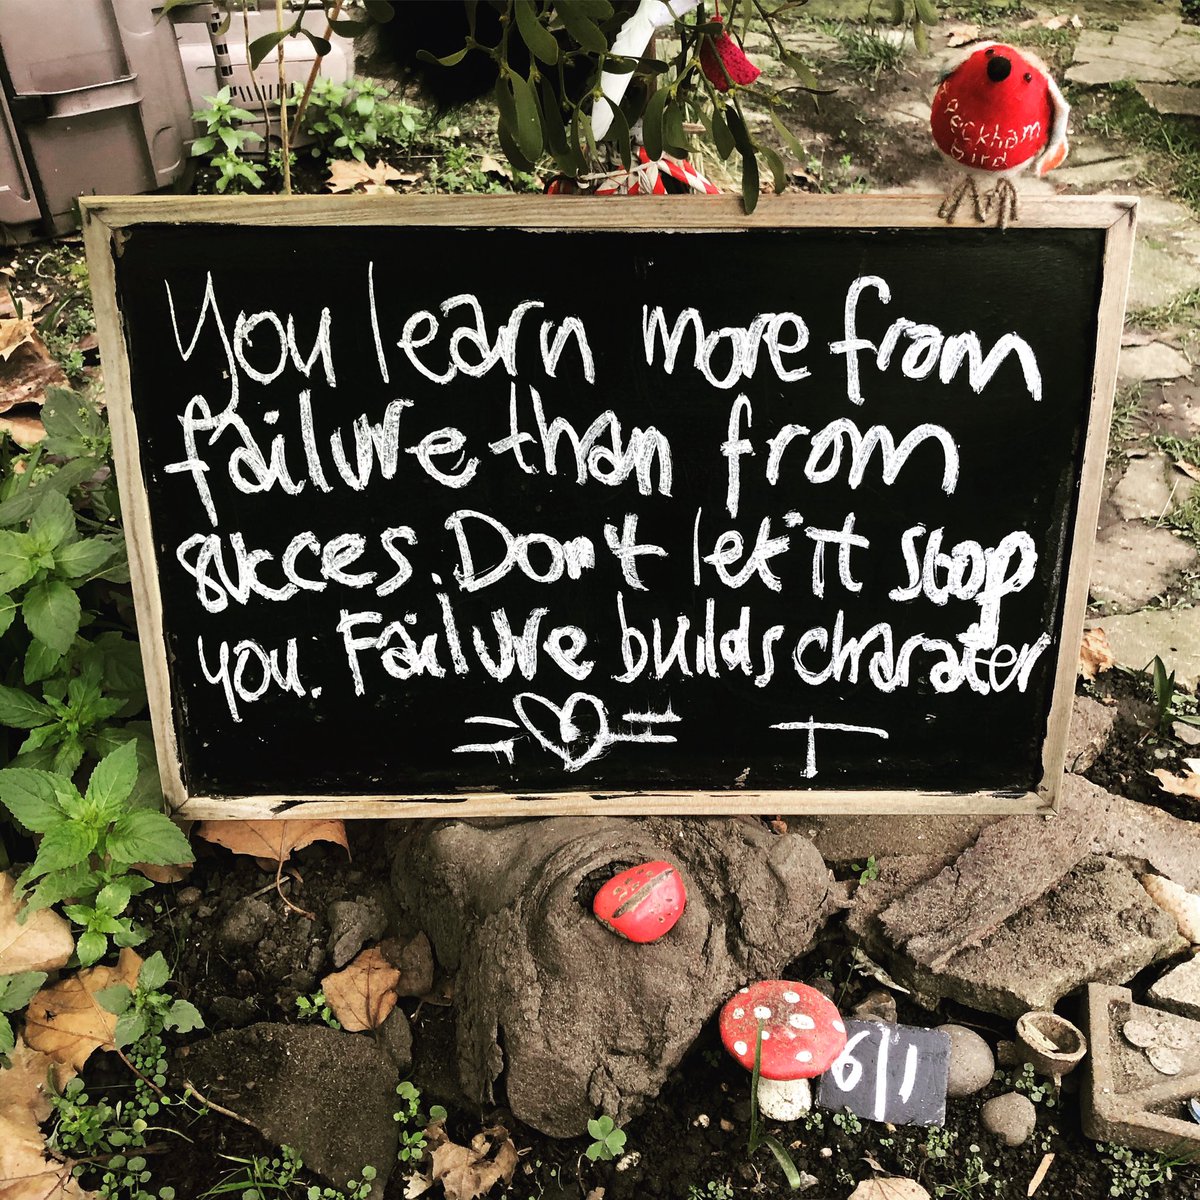 peckham
bird
You learn more from
failure than from
succes. Don't let it stop
you. Failure builds character
T
6/1